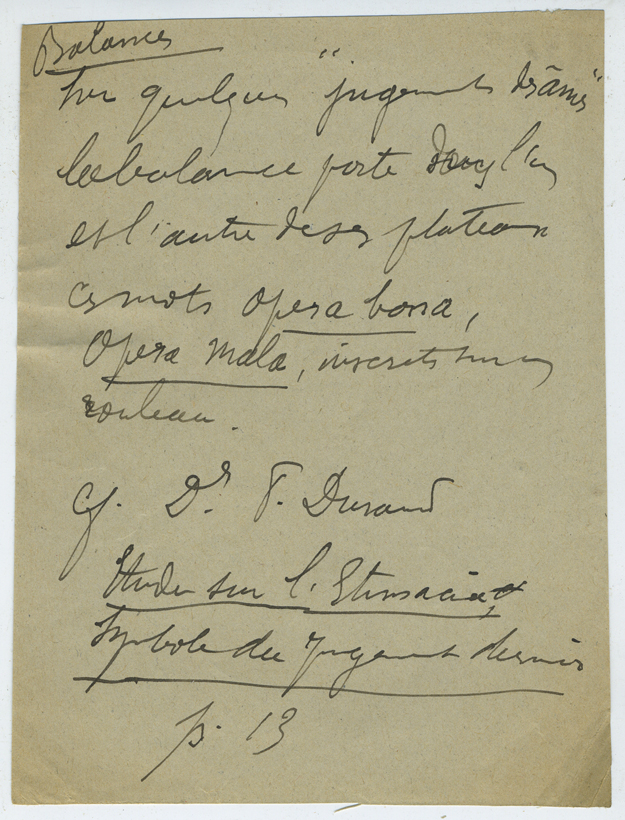 Balances
Sur quelques "jugements des âmes"
la balance porte dans l'un
et l'autre de ses plateaux
ces mots opera bona,
opera mala, inscrits sur un
rouleau.
cf. Dr. F. Durand
Etude sur l'Etimacia,
Symbole du Jugement dernier
p. 13